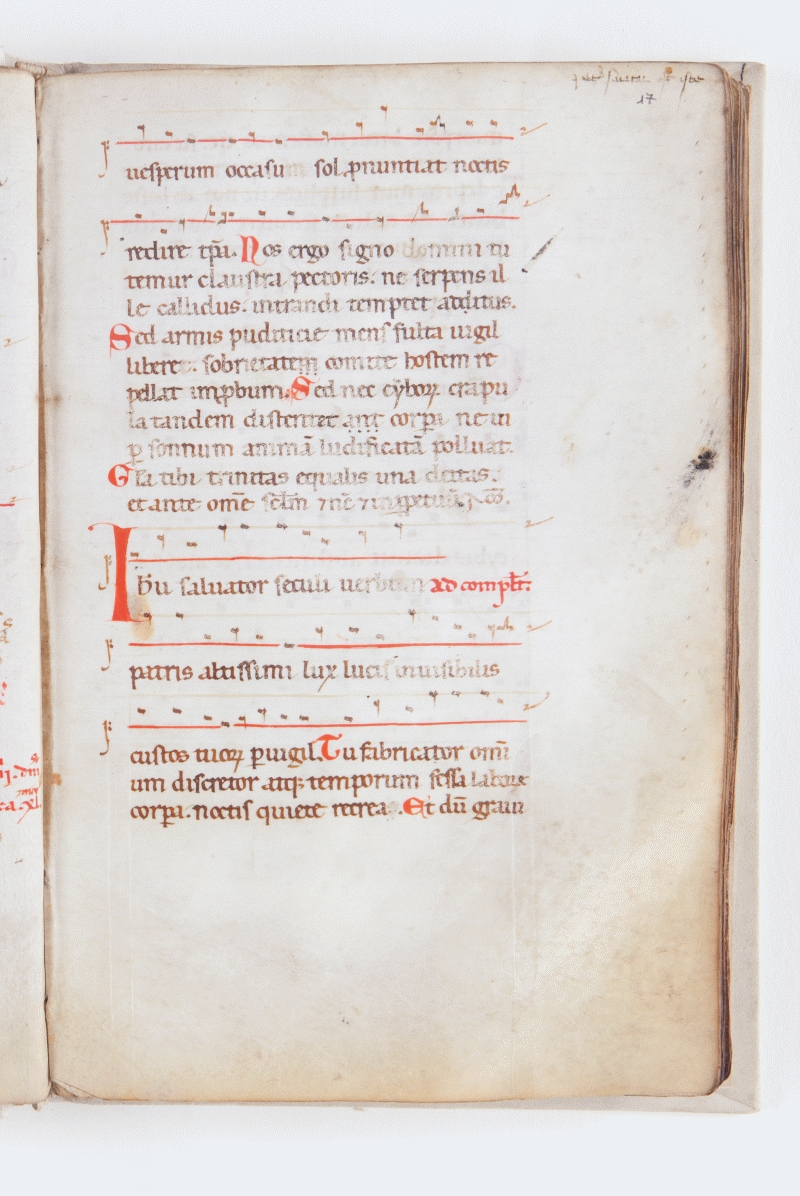 17
uesperum occasum sol p̱nuntiat noctis
redire tp̄a. Nos ergo signo domini tu
temur claustra pectoris. ne serpens il
le callidus. intrandi temptet additus.
Sed armis pudicicie mens fulta uigil
libere. sobrietatem comite hostem re
pellat imp̱bum. Sed nec cyboꝝ crapu
la tandem distentet corpa ne in
ꝑ sonnum animā ludificatā polluat.
Gl̄a tibi trinitas equalis una deitas.
et ante om̄e sc̄lm ⁊ nc̄ ⁊ imppetuū.
Ih̄u saluator seculi uerbum ad complt̄.
patris altissimi lux lucis inuisibilis
custos tuoꝝ ꝑuigil. Tu fabricator omī
um discretor atq; temporum fessa labore
corpa. noctis quiete recrea. Et dū graui